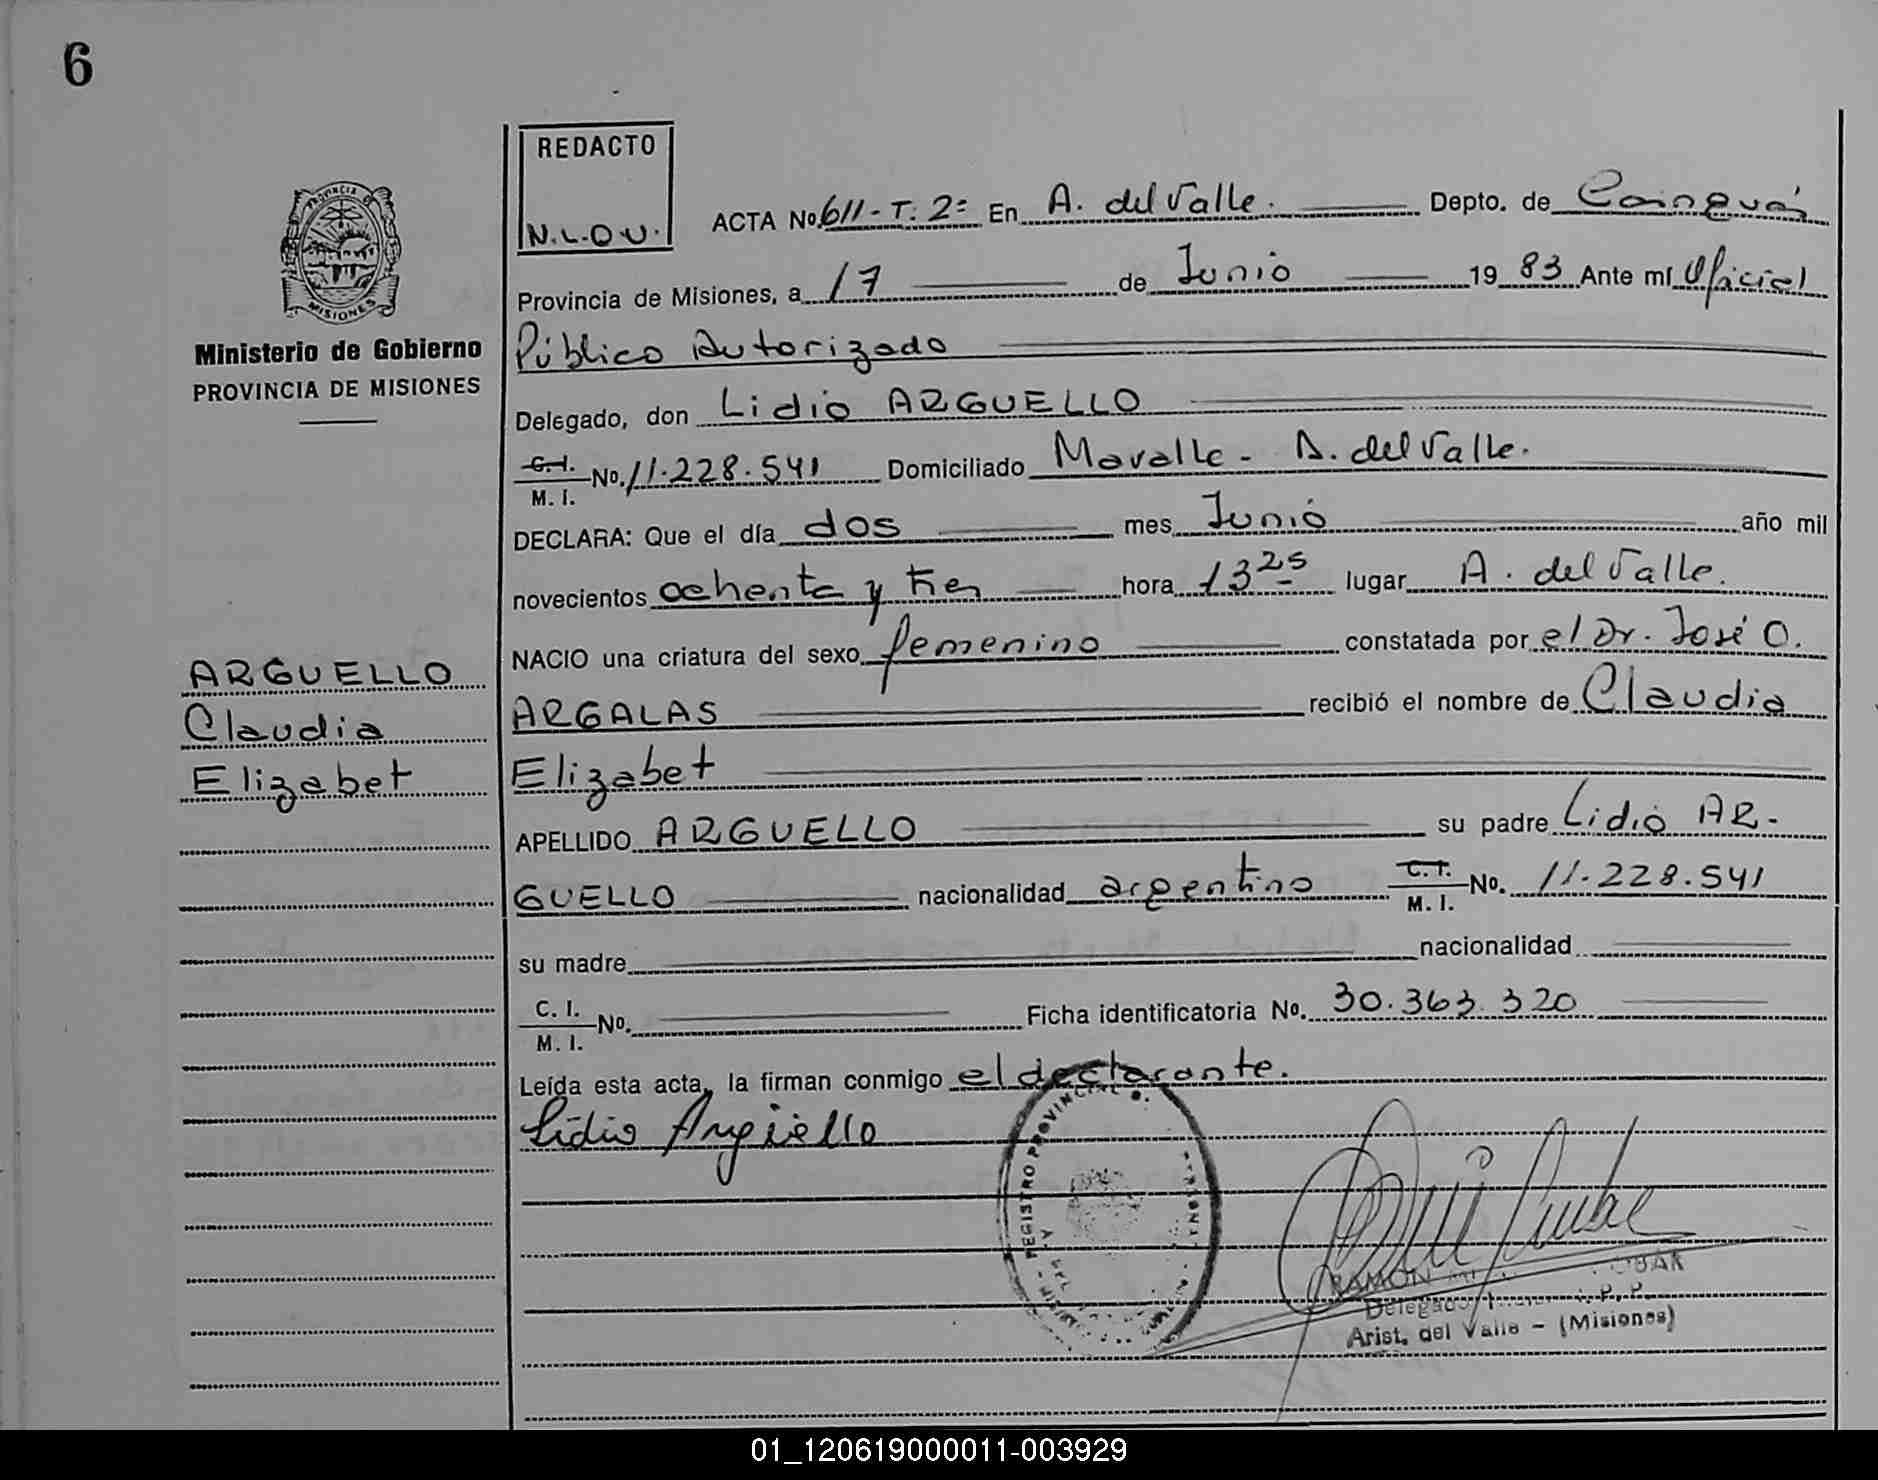 6
REDACTO
N.L.O.U.
ACTA No. 611-T. 2= En A. del Valle. Depto. de Cainguás
Provincia de Misiones, a 17 de Junio 19 83 Ante mí Oficial
Público Autorizado
Delegado, don Lidio ARGUELLO
C. I. M. I. No. 11.228.541 Domiciliado Mavalle - A. del Valle.
DECLARA: Que el día dos mes Junio año mil
novecientos ochenta y tres hora 13 25 lugar A. del Valle.
NACIO una criatura del sexo femenino constatada por el Dr. José O.
ARGALAS recibió el nombre de Claudia
Elizabet
APELLIDO ARGUELLO su padre Lidio AR-
GUELLO nacionalidad argentino C. I. M. I. No. 11.228.541
su madre nacionalidad
C. I. M. I. No. Ficha identificatoria No. 30.363.320
Leída esta acta, la firman conmigo el declarante.
Lidio Argüello
PROVINCIA DE
MISIONES
Ministerio de Gobierno
PROVINCIA DE MISIONES
ARGUELLO
Claudia
Elizabet
REGISTRO PROVINCIAL
RAMON
Delegado
Arist. del Valle - (Misiones)
01_120619000011-003929